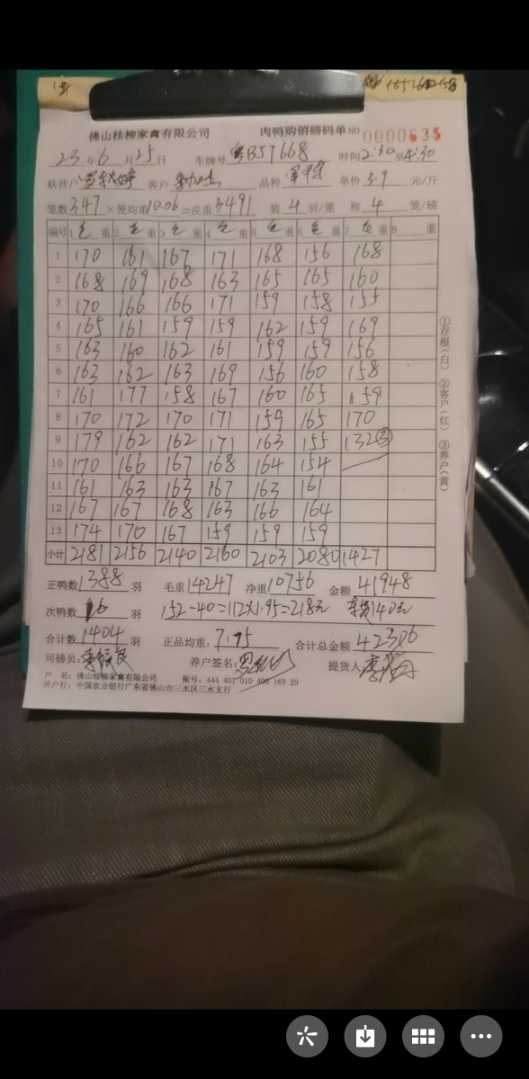 佛山桂柳家禽有限公司 肉鸭购销磅码单 NO 0000635
23年6月25日 车牌号 粤B57668 时间2:30至4:30
联营户 客户 品种 单价3.9元/斤
笼数347×笼均重10.06=皮重3491 装4羽/笼 称4笼/磅
编号 1 毛 重 2 毛 重 3 毛 重 4 毛 重 5 毛 重 6 毛 重 7 毛 重 8 重
1 170 161 167 171 168 156 168
2 168 169 168 163 165 165 160
3 170 166 166 171 159 158 155
4 165 161 159 159 162 159 169
5 163 160 162 161 159 159 156
6 163 162 163 169 156 160 158
7 161 177 158 167 160 165 159
8 170 172 170 171 159 165 170
9 179 162 162 171 163 155 132③
10 170 166 167 168 164 154
11 161 163 163 167 163 161
12 167 167 168 163 166 164
13 174 170 167 159 159 159
小计 2181 2156 2140 2160 2103 2080 1427
①存根(白) ②客户(红) ③养户(黄)
正鸭数1388羽 毛重14247 净重10756 金额41948
次鸭数16羽 152-40=112×1.95=218元 140元
合计数1404羽 正品均重:7.75 合计总金额42306
司磅员: 养户签名: 提货人
户 名:佛山桂柳家禽有限公司 账号:444 401 010 400 169 29
开户行:中国农业银行广东省佛山市三水区三水支行